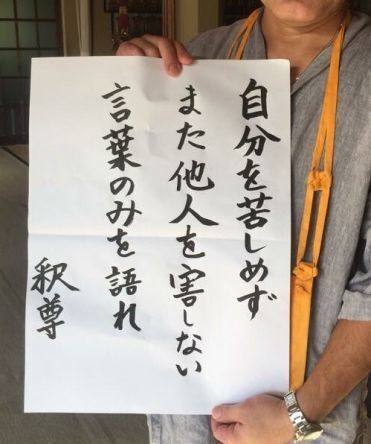 自分を苦しめず
また他人を害しない
言葉のみを語れ
釈尊